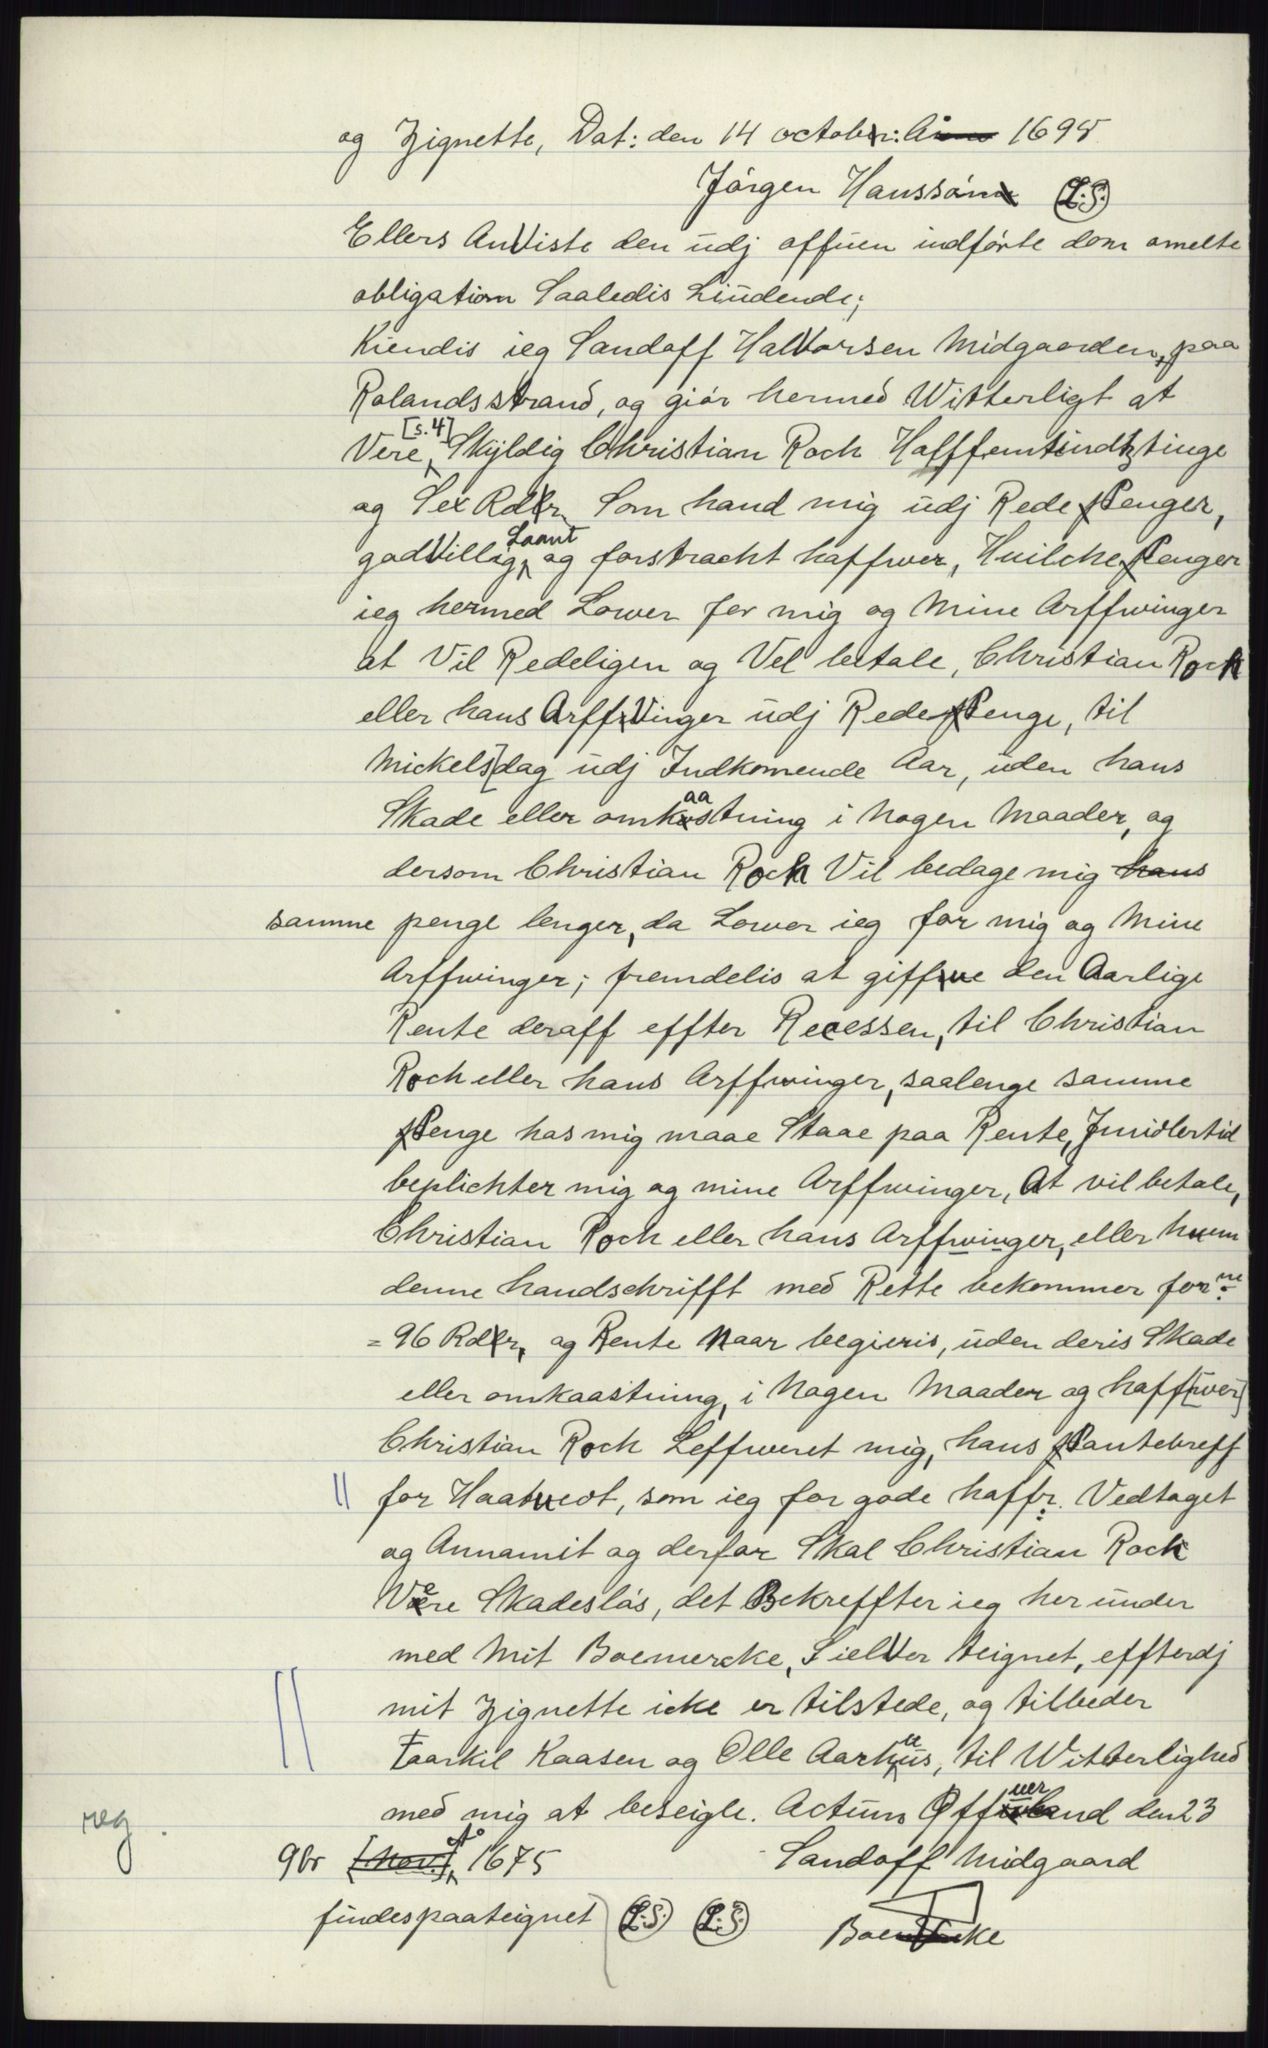 og Zignette, Dat: den 14 octobr: A° 1698
Jörgen Hanssön (L.S.)
Ellers AnViste den üdj offüen indförte dom omelte
obligation Saaledis Liüdende;
Kiendis ieg Sandoff HalVorsen Midgaarden, paa
Rolandsstrand, og giör hermed Witterligt at
Vere [s. 4] Skÿldig Christian Roch Halffemtindtztinge
og Sex Rdlr Som hand mig üdj Rede Penger,
godVillig Laant og forstracht haffwer, Huilche Penger
ieg hermed Lower for mig og Mine Arffwinger
at Vil Redeligen og Vel betale, Christian Roch
eller hans ArffVinger üdj Rede Penge, til
Mickels[dag üdj Indkomende Aar, üden hans
Skade eller omkaastning i Nogen Maader, og
dersom Christian Roch Vil bedage mig hans
samme penge lenger, da Lower ieg for mig og Mine
Arffwinger; fremdelis at giffue den Aarlige
Rente deraff effter Recessen, til Christian
Roch eller hans Arffwinger, saalenge samme
Penge hos mig maae Staae paa Rente, Jmidlertid
beplichter mig og mine Arffwinger, At vil betale,
Christian Roch eller hans Arffwinger, eller huem
denne handschrifft med Rette bekommer forne
= 96 Rdlr, og Rente Naar begieris, üden deris Skade
eller omkaastning, i Nogen Maader og haff[wer]
Christian Roch Leffweret mig, hans Pantebreff
for Haatuedt, som ieg for gode haffr. Vedtaget
og Annamit og derfor Skal Christian Rock
Vere Skadeslös, det Bekreffter ieg her ünder
med Mit Boemercke, SielVer teignet, effterdj
mit Zignette icke er tilstede, og tilbeder
Taarkil Kaasen og Olle Aarhuus, til Witterlighed
med mig at beseigle. Actüm Offüerland den 23
9br [Nov.] A° 1675 Sandoff Midgaard
findes paateignet (L.S.) (L.S.) Boemercke
reg.